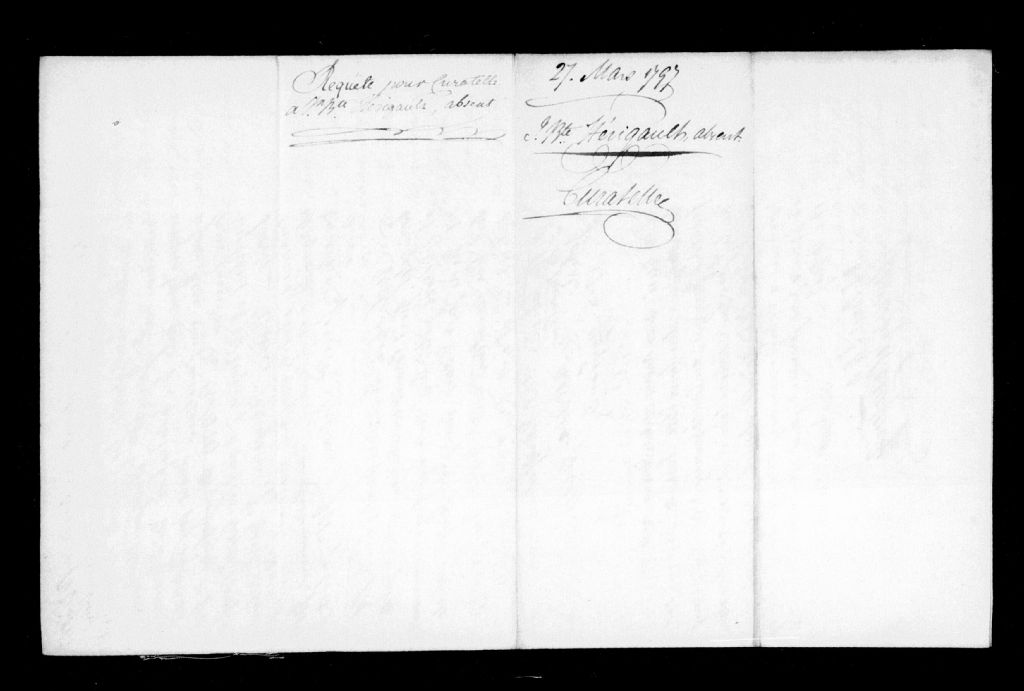 Requête pour Curatelle
a Jn. Bte. Hérigault, absent
27. Mars 1797
J. Bte Hérigault, absent.
Curatelle